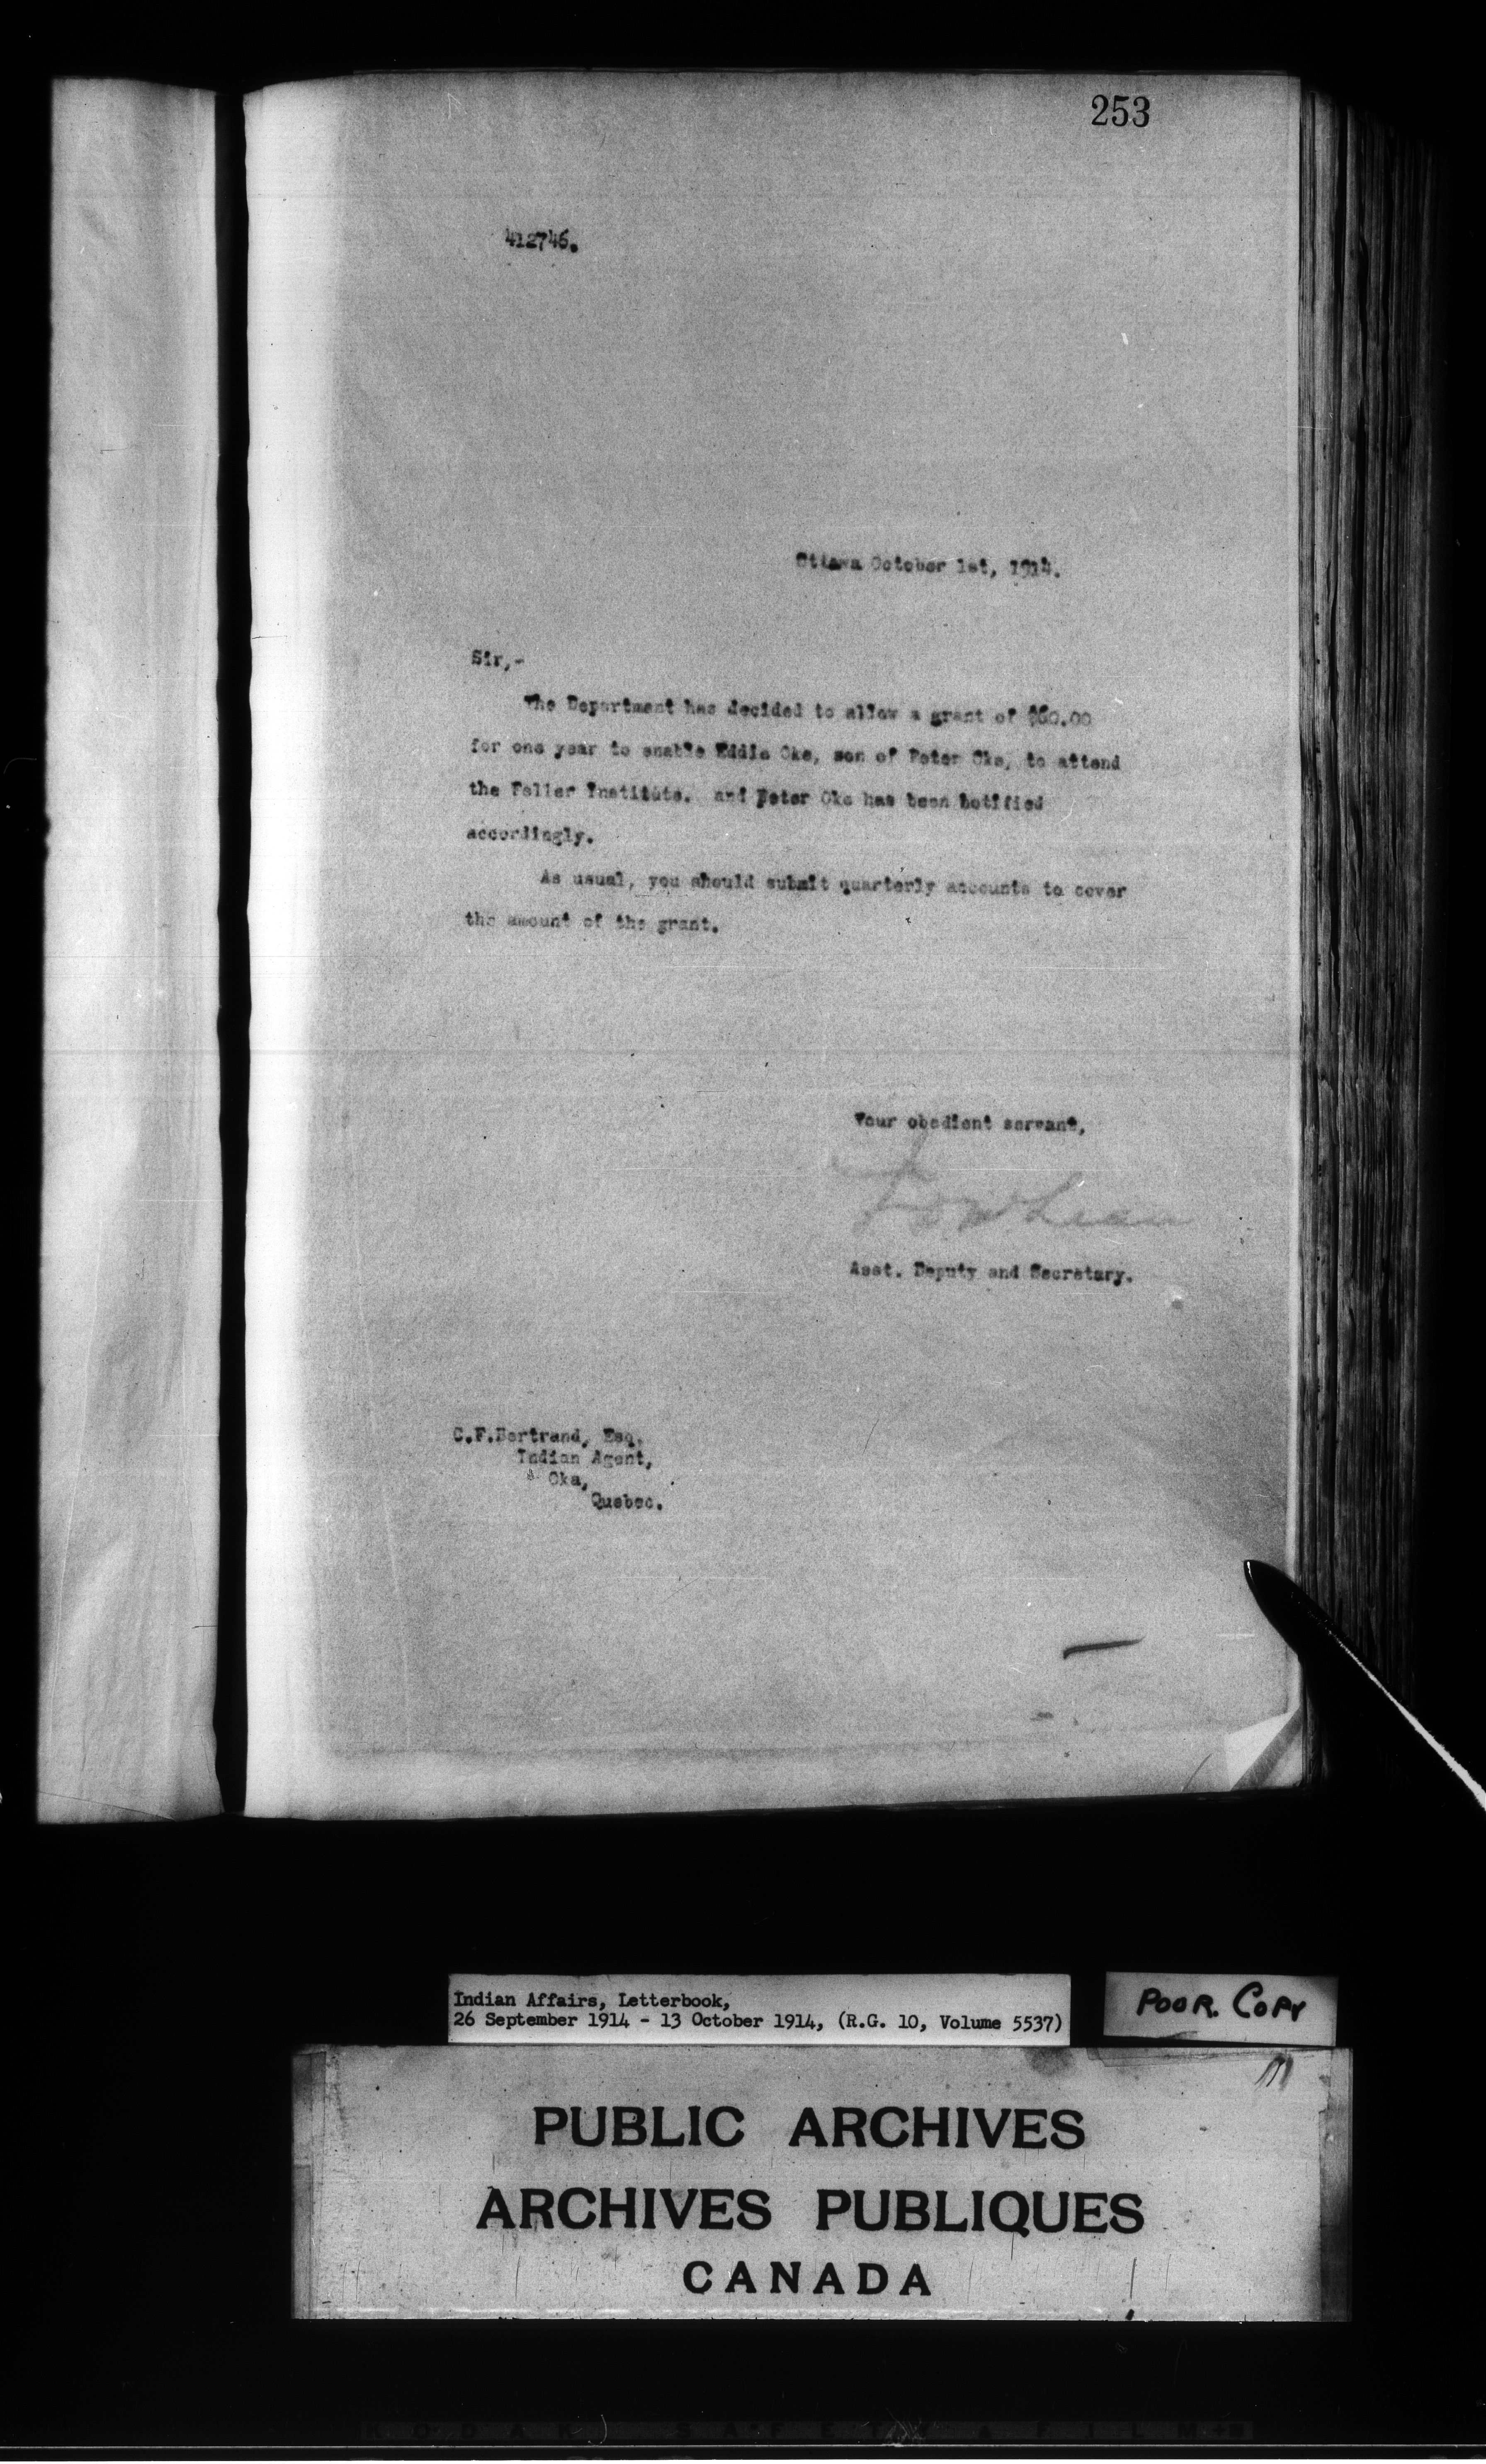 253
412746.
Ottawa October 1st, 1914.
Sir,-
The Department has decided to allow a grant of $60.00
for one year to enable Eddie Oke, son of Peter Oke, to attend
the Feller Institute. and Peter Oke has been notified
accordingly.
As usual, you should submit quarterly accounts to cover
the amount of the grant.
Your obedient servant,
Asst. Deputy and Secretary.
C.F.Bertrand, Esq.
Indian Agent,
Oka,
Quebec.
Indian Affairs, Letterbook,
26 September 1914 - 13 October 1914, (R.G. 10, Volume 5537)
POOR. COPY
PUBLIC ARCHIVES
ARCHIVES PUBLIQUES
CANADA
KODAK SAFETY FILM